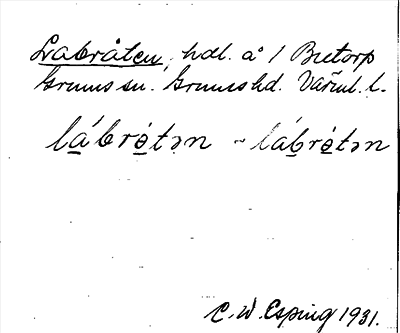 Labråten, hdl. å 1 Bretorp
Grums sn. Grums hd. Värml. l.
lábrètən - lábrètən
C. W. Esping 1931.